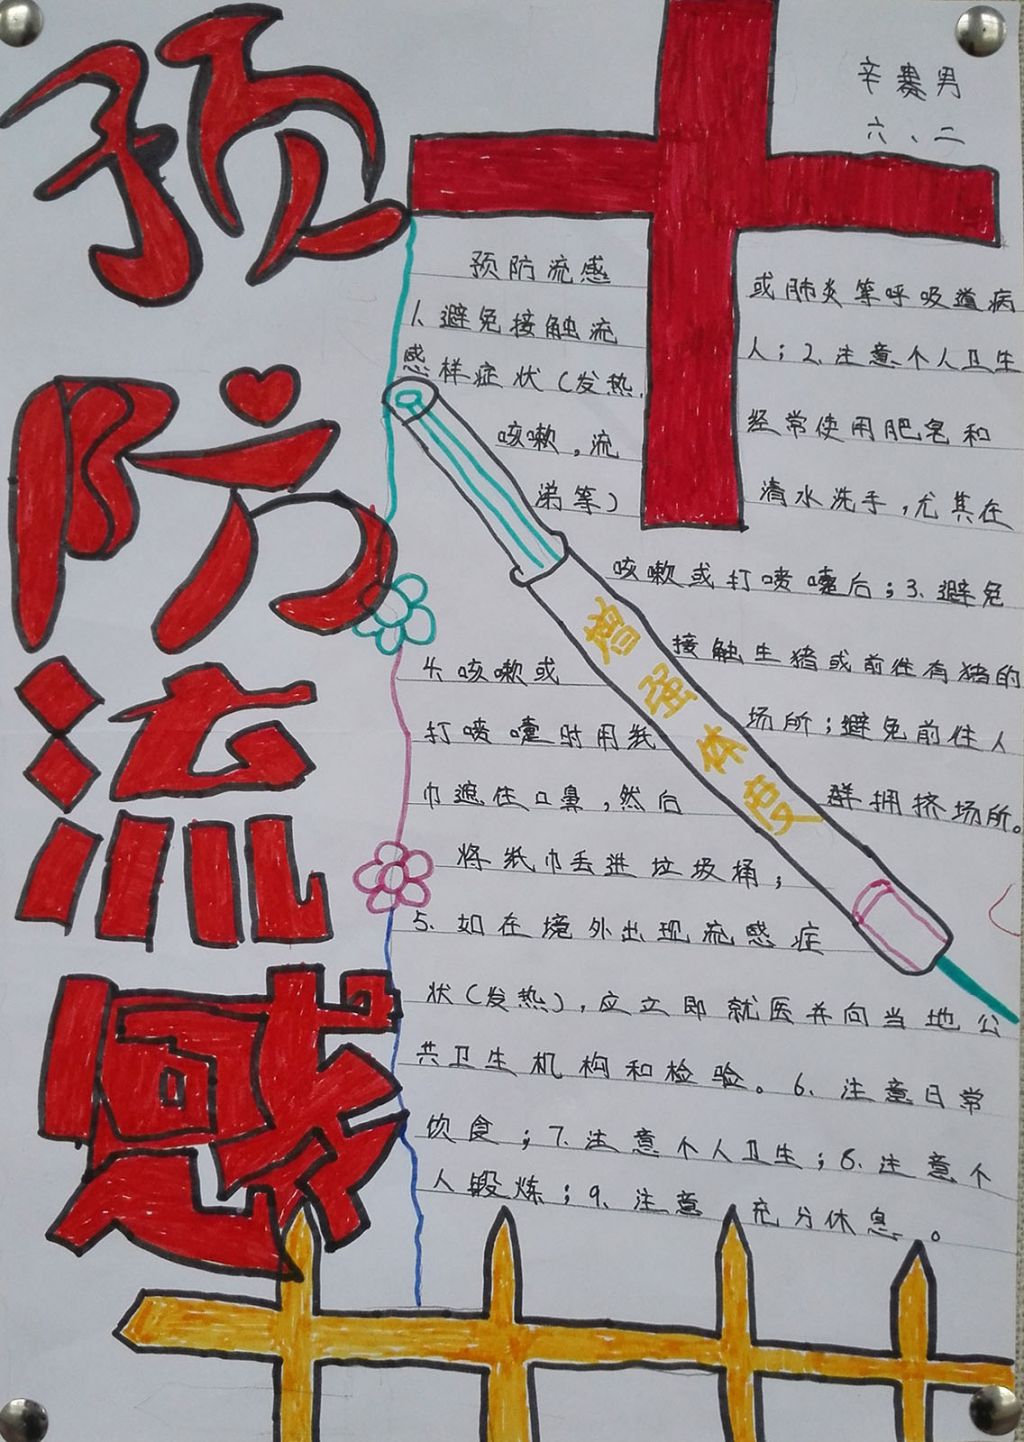 预防流感
辛赛男
六、二
预防流感
1、避免接触流
感样症状（发热，
咳嗽，流
涕等）
或肺炎等呼吸道病
人；2、注意个人卫生
经常使用肥皂和
清水洗手，尤其在
咳嗽或打喷嚏后；3、避免
接触生猪或前往有猪的
场所；避免前往人
群拥挤场所。
4、咳嗽或
打喷嚏时用纸
巾遮住口鼻，然后
将纸巾丢进垃圾桶；
5、如在境外出现流感症
状（发热），应立即就医并向当地公
共卫生机构和检验。6、注意日常
饮食；7、注意个人卫生；8、注意个
人锻炼；9、注意充分休息。
增强体度